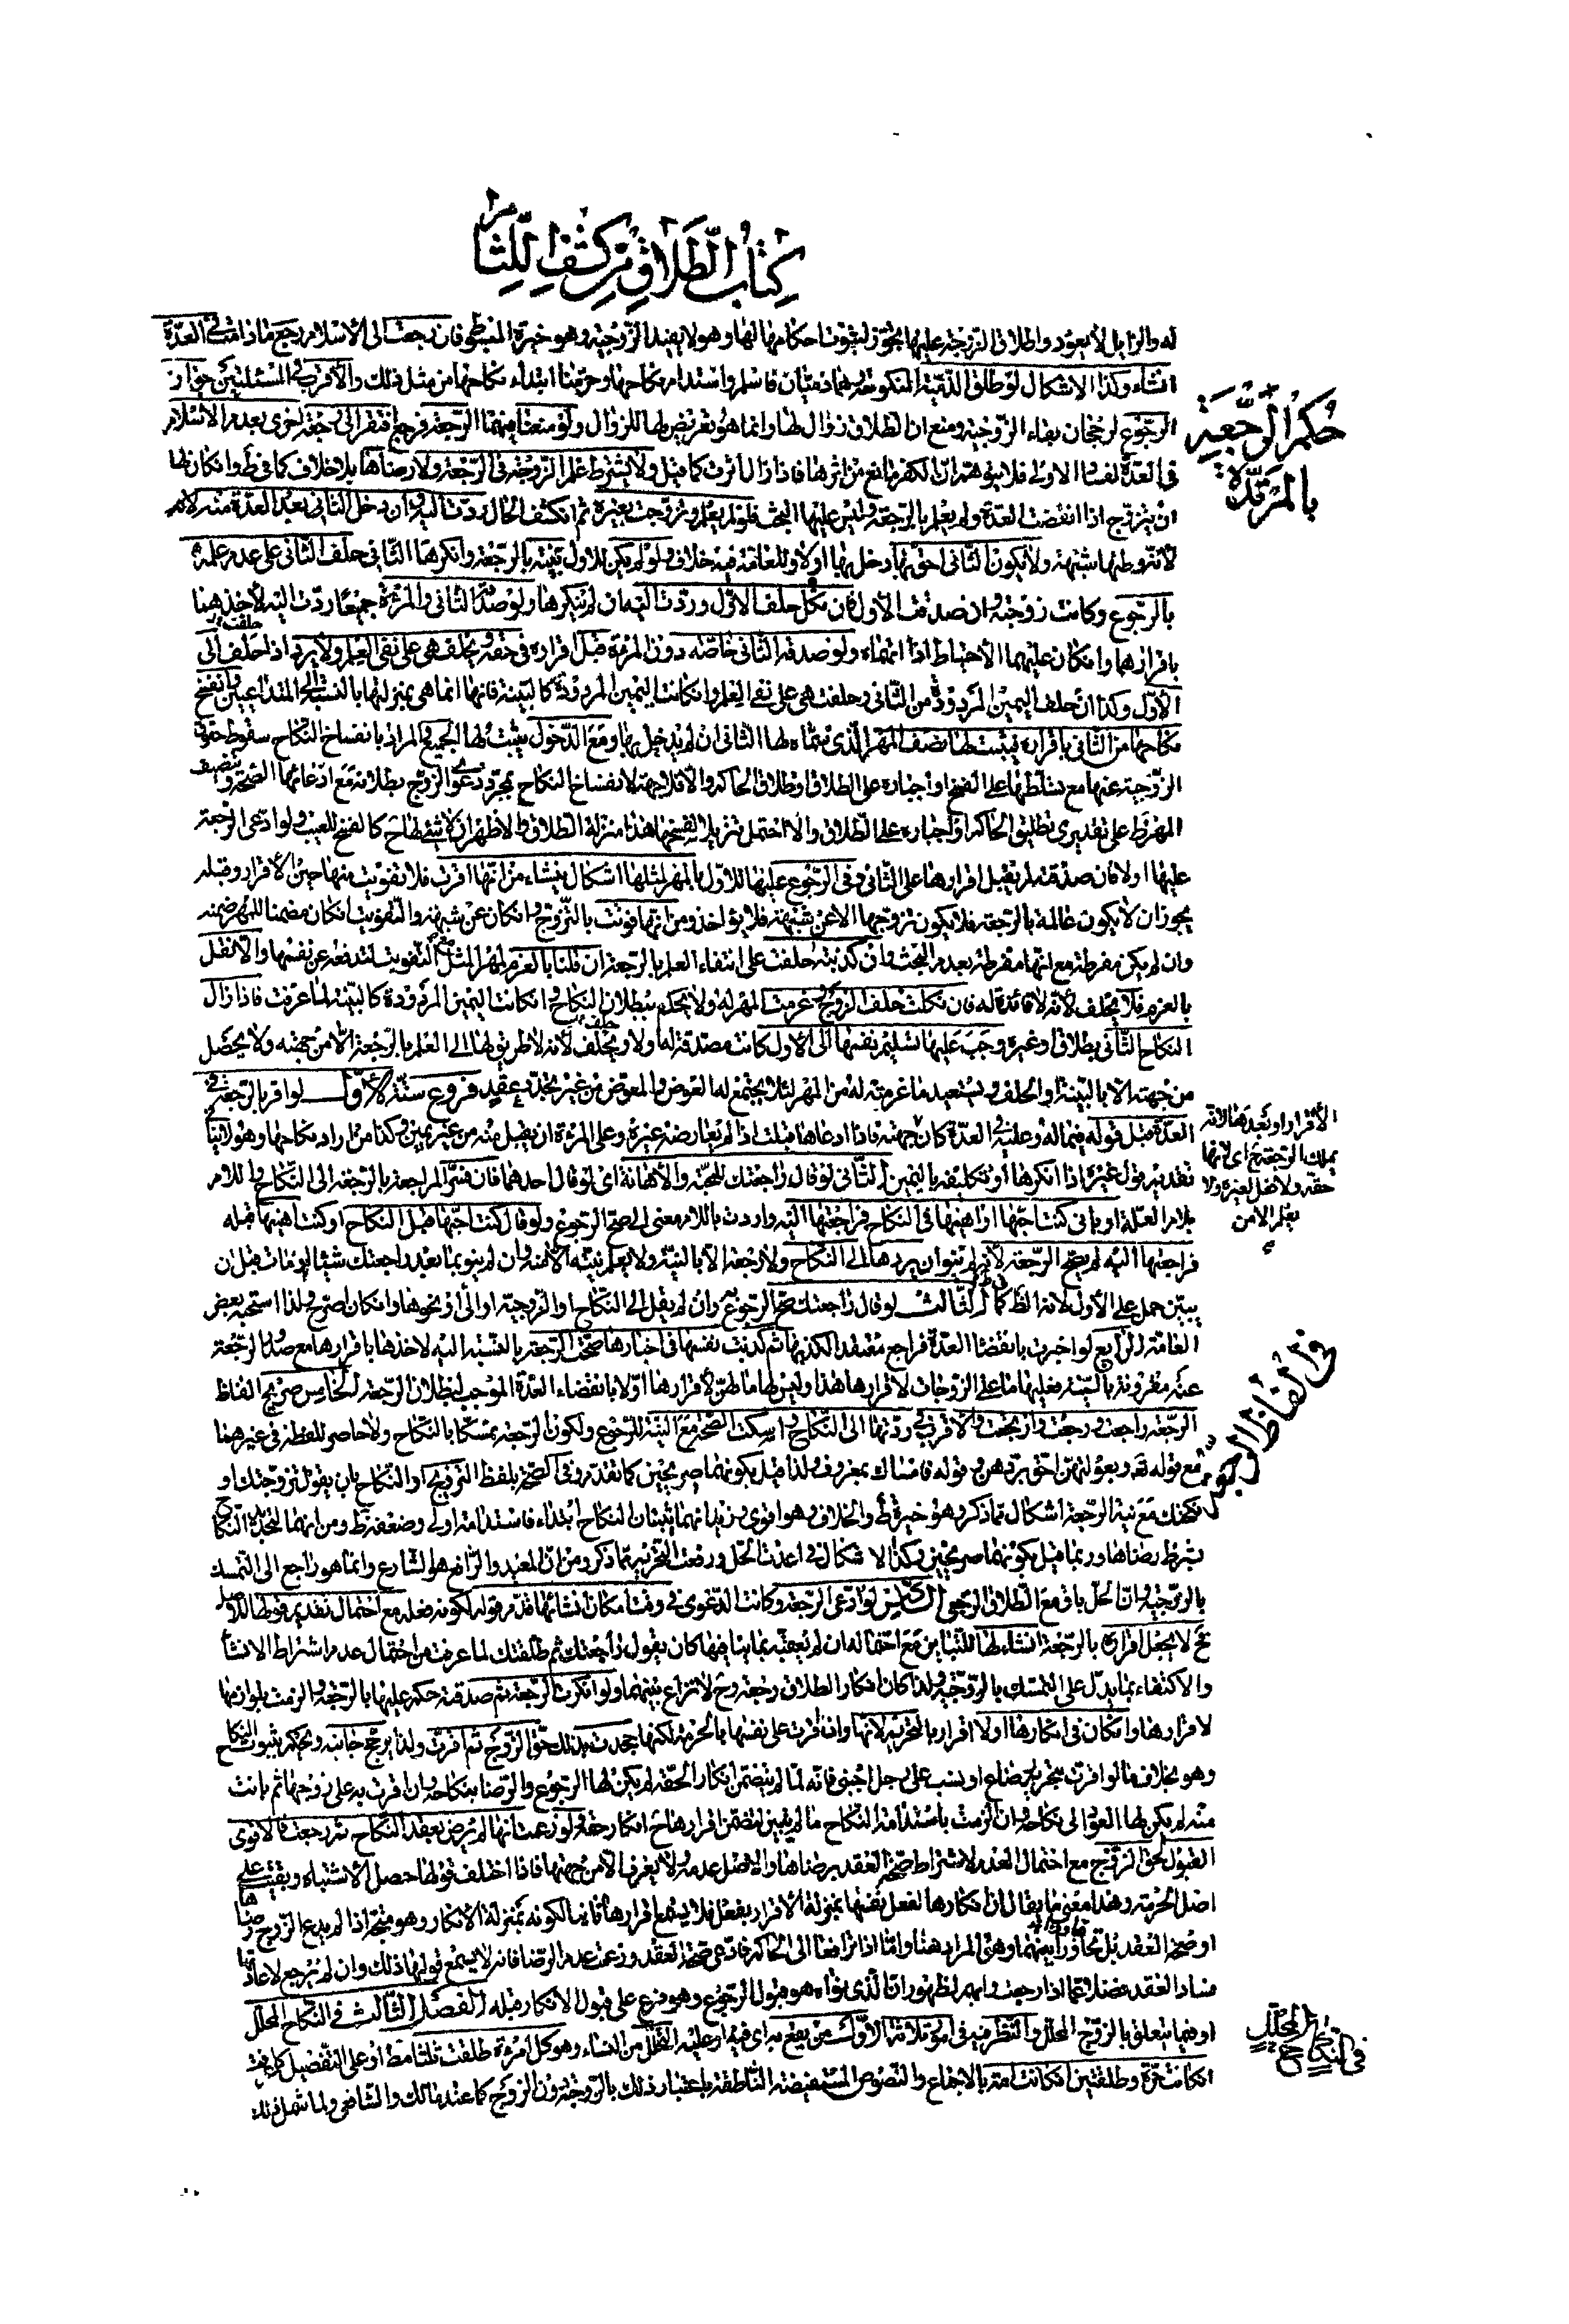 كتاب الطلاق من كشف اللثام
له والزايل لا يعود واطلاق الزوجة عليها يتجوز لثبوت احكامها لها وهو لا يفيد الزوجية وهو خيرة المبسوط فان رجعت الى الاسلام رجع ما دامت في العدة
انشاء وكذا الاشكال لو طلق الذمية المنكوحة وهما ذميان فاسلم واستدام نكاحها وحرمنا ابتداء نكاحها من مثل ذلك والاقرب في المسئلتين جواز
حكم الرجعية بالمرتدة
الرجوع لرجحان بقاء الزوجية ومنع ان الطلاق زوال لها وانما هو تعريض لها للزوال ولو منعنا فيهما الرجعة فرجع افتقر الى رجعة اخرى بعد الاسلام
في العدة لفساد الاولى فلا يتوهم ان الكفر مانع من اثرها فاذا زال اثرت كما قيل ولا يشترط علم الزوجة في الرجعة ولا رضاها بلا خلاف كما في ط وانكان لها
ان يتزوج اذا انقضت العدة ولم يعلم بالرجعة وليس عليها البحث فلو لم يعلم وتزوجت بغيره ثم انكشف الحال ردت اليه وان دخل الثاني بعد العدة منه لانه
لانه وطئها شبهة ولا يكون الثاني احق بها دخل بها او لا وللعامة فيه خلاف ولو لم يكن للاول بينة بالرجعة وانكرها الثاني حلف الثاني على عدم علمه
بالرجوع وكانت زوجته وان صدقت الاول فان نكل حلف الاول وردت اليه ان لم تنكرها ولو صدقه الثاني والمرئة جميعا ردت اليه لاخذهما
باقرارهما وانكان عليهما الاحتياط اذا اتهماه ولو صدقه الثاني خاصة دون المرئة قبل اقراره في حقه ويحلف هي على نفي العلم ولا يرد اذا حلفت الى
الاول وكذا ان حلف اليمين المردودة من الثاني وحلفت هي على نفي العلم وانكانت اليمين المردودة كالبينة فانها انما هي بمنزلتها بالنسبة الى المتداعيين وانفسخ
نكاحها من الثاني باقراره فيثبت لها نصف المهر الذي سماه لها الثاني ان لم يدخل بها ومع الدخول يثبت لها الجميع والمراد بانفساخ النكاح سقوط حقوق
الزوجية عنها مع تسلطها على الفسخ او اجباره على الطلاق او طلاق الحاكم والا فلا جهة لانفساخ النكاح بمجرد دعوى الزوج بطلانه مع ادعائها الصحة وتنصيف
المهر ظ على تقديري تطليق الحاكم او اجباره على الطلاق والا احتمل تنزيلا لفسخها هذا منزلة الطلاق والاظهر ان لا شئ لها ح كالفسخ للعيب ولو ادعى الرجعة
عليها اولا فان صدقته لم يقبل اقرارها على الثاني وفي الرجوع عليها للاول بالمهر لمثلها اشكال ينشاء من انها اقرت فلا تفويت منها حين الاقرار وقبله
يجوز ان لا يكون عالمة بالرجعة فلا يكون تزوجها الا عن شبهة فلا يؤاخذ ومن انها فوتت بالتزوج وانكان عن شبهة والتفويت انكان مضمنا للمهر ضمنه
وان لم يكن مفرطة مع انها مفرطة بعدم البحث وان كذبته حلفت على انتفاء العلم بالرجعة ان قلنا بالغرم لمهر المثل مع التفويت لتدفعه عن نفسها والا نقل
بالغرم فلا يحلف لانه لا فائدة له فان نكلت حلف الزوج وغرمت المهر له ولا يحكم ببطلان النكاح وانكانت اليمين المردودة كالبينة لما عرفت فاذا زال
النكاح الثاني بطلاق او غيره وجب عليها تسليم نفسها الى الاول كانت مصدقة له او لا ويحلف لانه لا طريق لها الى العلم بالرجعة الا من جهته ولا يحصل
من جهته الا بالبينة او الحلف ويستعيد ما غرمته له من المهر لئلا يجتمع له العوض والمعوض من غير تجدد عقد فروع ستة الاول لو اقر بالرجعة في
العدة قبل قوله فيما له وعليه في العدة كان جهته فاذا ادعاها قبلت اذا لم يعارضه غيره وعلى المرئة ان يقبل منه من غير يمين وكذا من اراد نكاحها وهو لا ينافي
الاقرار او بعدها لانه
يملك الرجعة ح اي لانها
حقه ولا فعل لغيره ولا
يعلم الا من
تقديم قول غيره اذا انكرها او تكليفه باليمين الثاني لو قال راجعتك للمحبة والاهانة اي لو قال احدهما فان فسر المراجعة بالرجعة الى النكاح واللام
بلام العلة او باني كنت احبها او اهينها في النكاح فراجعتها اليه واردت باللام معنى الى صح الرجوع ولو قال كنت احبها قبل النكاح او كنت اهينها قبله
فراجعتها اليه لم يصح الرجعة لانه لم ينو ان يردها الى النكاح ولا رجعة الا بالنية ولا يعلم نيته الا منه وان لم ينو بما بعد راجعتك شيئا او مات قبل ان
يبين حمل على الاول لانه الظ كما في ط الثالث لو قال راجعتك صح الرجوع به وان لم يقل الى النكاح او الزوجية او الي او نحوها وانكان اصرح ولذا استحبه بعض
العامة الرابع لو اخبرت بانقضاء العدة فراجع معتقدا لكذبها ثم كذبت نفسها في اخبارها صحت الرجعة بالنسبة اليه لاخذها باقرارها مع صدور الرجعة
عنه مقرونة بالنية فعليها ما على الزوجات لاقرارها هذا وليس لها ما لهن لاقرارها اولا بانقضاء العدة الموجب لبطلان الرجعة الخامس صريح الفاظ
في الفاظ الرجوع
الرجعة راجعت ورجعت وارتجعت والاقرب في رددتها الى النكاح وامسكت الصحة مع النية للرجوع ولكون الرجعة تمسكا بالنكاح ولا حاصر للفظه في غيرهما
مع قوله تعه وبعولتهن احق بردهن وقوله فامساك بمعروف ولذا قيل بكونهما صريحين كما تقدم وفي الصحة بلفظ التزويج او النكاح بان يقول تزوجتك او
نكحتك مع نية الرجعة اشكال مما ذكر وهو خيرة ط والخلاف وهو اقوى ويزيد انهما يثبتان النكاح ابتداء فاستدامته اولى وضعفه ظ ومن انهما لتجديد النكاح
بشرط رضاها وربما قيل بكونهما صريحين وكذا الاشكال في اعدت الحل ورفعت التحريم مما ذكر ومن ان المعيد والرافع هو الشارع وانما هو راجع الى التمسك
بالزوجية وان الحل باق مع الطلاق الرجعي السادس لو ادعى الرجعة وكانت الدعوى في وقت امكان انشائها قدم قوله لكونه فعله مع احتمال تقديم قولها للاصل
ح لا يجعل اقراره بالرجعة انشاء لها للتباين مع احتماله ان لم يعقبه بما ينافيها كان يقول راجعتك ثم طلقتك لما عرفت من احتمال عدم اشتراط الانشاء
والاكتفاء بما يدل على التمسك بالزوجية ولذا كان انكار الطلاق رجعة وح لا نزاع بينهما ولو انكرت الرجعة ثم صدقته حكم عليها بالرجعة والزمت بلوازمها
لاقرارها وانكان في انكارها اولا اقرار بالتحريم لانها وان اقرت على نفسها بالحرمة لكنها جحدت بذلك حق الزوج ثم اقرت ولذا يرجح جانبه ويحكم بثبوت النكاح
وهو بخلاف ما لو اقرت بتحريم رضاع او نسب على رجل اجنبي فانه لما لم يتضمن انكار الحقه لم يكن لها الرجوع والرضا بنكاحه وان اقرت به على زوجها ثم بانت
منه لم يكن لها العود الى نكاحه وان الزمت باستدامة النكاح ما لم يبين لتضمن اقرارها ح انكار حقه ولو زعمت انها لم ترض بعقد النكاح ثم رجعت فالاقوى
القبول لحق الزوج مع احتمال العدم لاشتراط صحة العقد برضاها والاصل عدمه ولا يعرف الا من جهتها فاذا اختلف قولها حصل الاشتباه وبقيت على
اصل الحرمة وهذا معنى ما يقال ان انكارها لفعل نفسها بمنزلة الاقرار بفعل فلا يسمع اقرارها ثانيا لكونه بمنزلة الانكار وهو متجه اذا لم يدع الزوج رضاها
او صحة العقد بل تحاورا بينهما وهي المراد هنا واما اذا ترافعا الى الحاكم فادعى صحة العقد وزعمت عدم الرضا فانه لا يسمع قولها ذلك وان لم ترجع لادعائها
فساد العقد فضلا عما اذا رجعت ولم يظهر ان الذي قواه هو قبول الرجوع وهو فرع على قبول الانكار قبله الفصل الثالث في النكاح المحلل
في النكاح المحلل
او فيما يتعلق بالزوج المحلل والنظر فيه في امور ثلاثة الاول من يقع به اي فيه او عليه التحلل من النساء وهو كل امرئة طلقت ثلثا مط او على التفصيل كما عرفت
انكانت حرة وطلقتين انكانت امة بالاجماع والنصوص المستفيضة الناطقة باعتبار ذلك بالزوجة دون الزوج كما عند مالك والشافعي ولما شمل ذلك